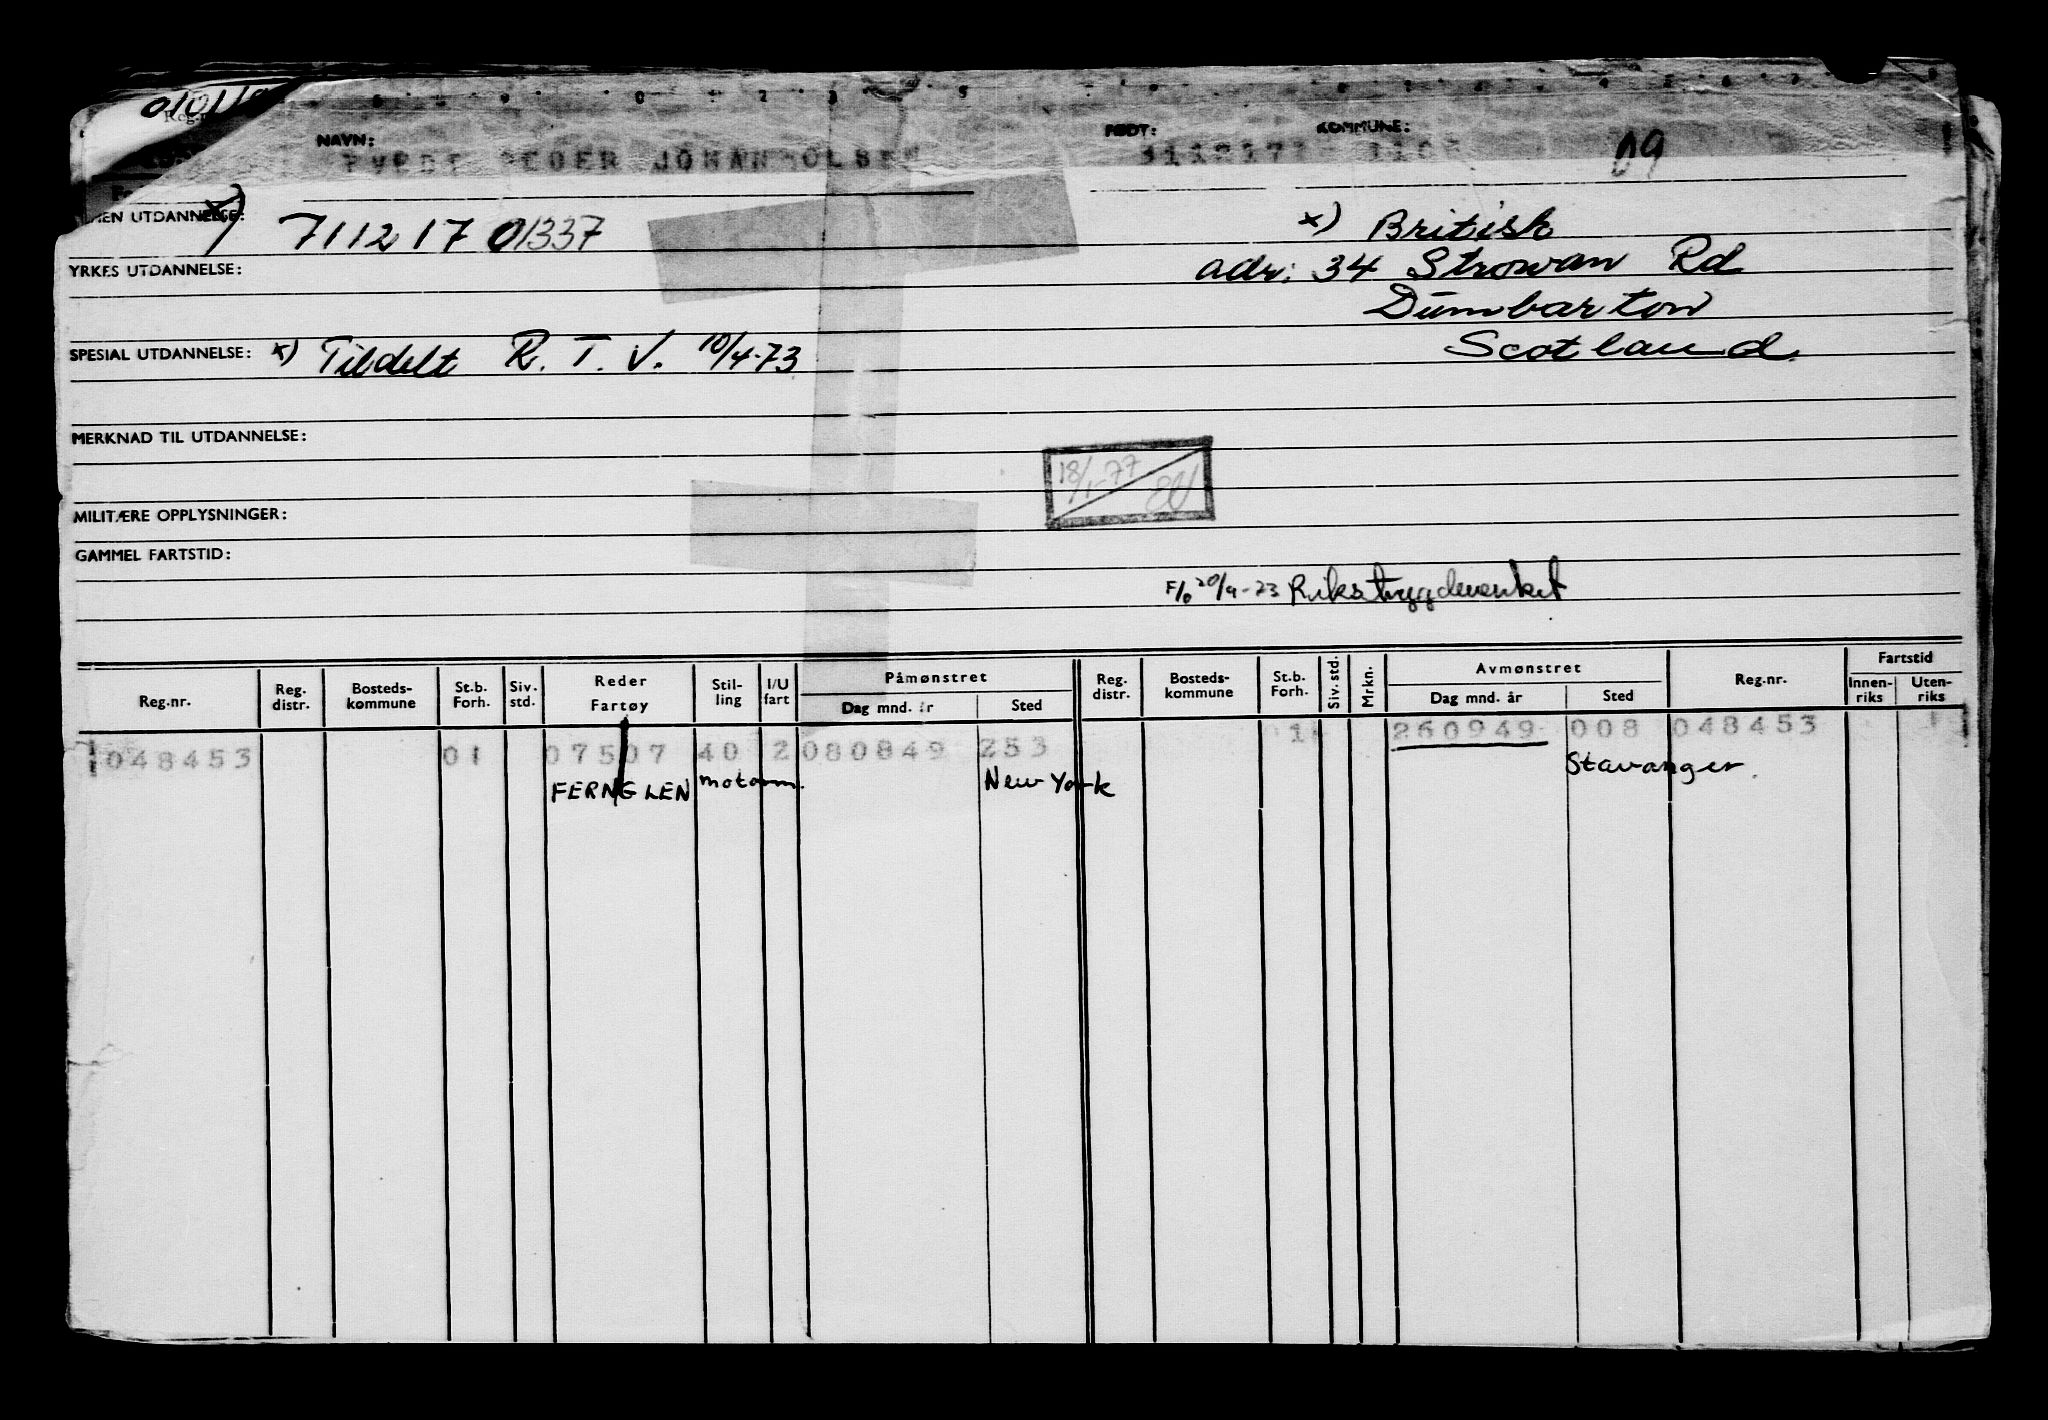 NAVN: FØDT: KOMMUNE:
JOHAN OLSEN
09
UTDANNELSE: x) 711217 01337
x) British
YRKES UTDANNELSE:
adr: 34 Strowan Rd
Dumbarton
Scotland.
SPESIAL UTDANNELSE: x) Tildelt R. T. V. 10/4-73
MERKNAD TIL UTDANNELSE:
18/1-77
MILITÆRE OPPLYSNINGER:
GAMMEL FARTSTID:
Rikstrygdeverket
Reg.nr. Reg. distr. Bosteds-kommune St.b. Forh. Siv. std. Reder Fartøy Stil-ling I/U fart Påmønstret Dag mnd. år Sted Reg. distr. Bosteds-kommune St.b. Forh. Siv. std. Mrkn. Avmønstret Dag mnd. år Sted Reg.nr. Fartstid Innen-riks Uten-riks
048453 01 07507 40 2 080849 253 1 260949 008 048453 1
FERNGLEN motorm. New York Stavanger.